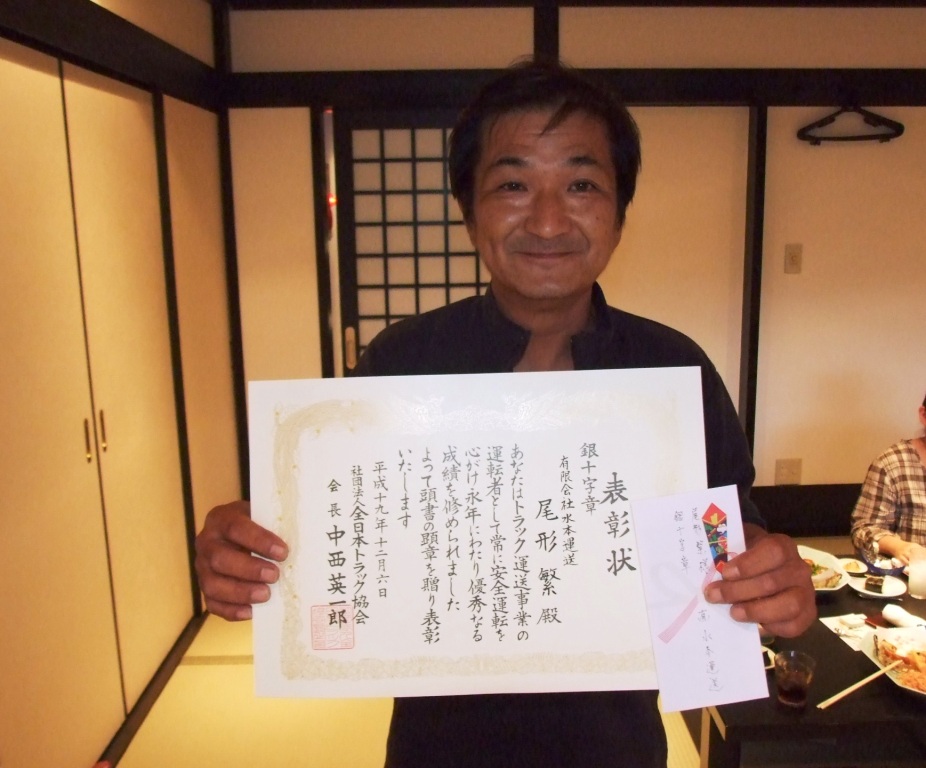 表彰状
銀十字章
有限会社水本運送
尾形繁殿
あなたはトラック運送事業の
運転者として常に安全運転を
心がけ永年にわたり優秀なる
成績を修められました
よって頭書の顕章を贈り表彰
いたします
平成十九年十二月六日
社団法人全日本トラック協会
会長中西英一郎
尾形繁様
銀十字章
水本運送